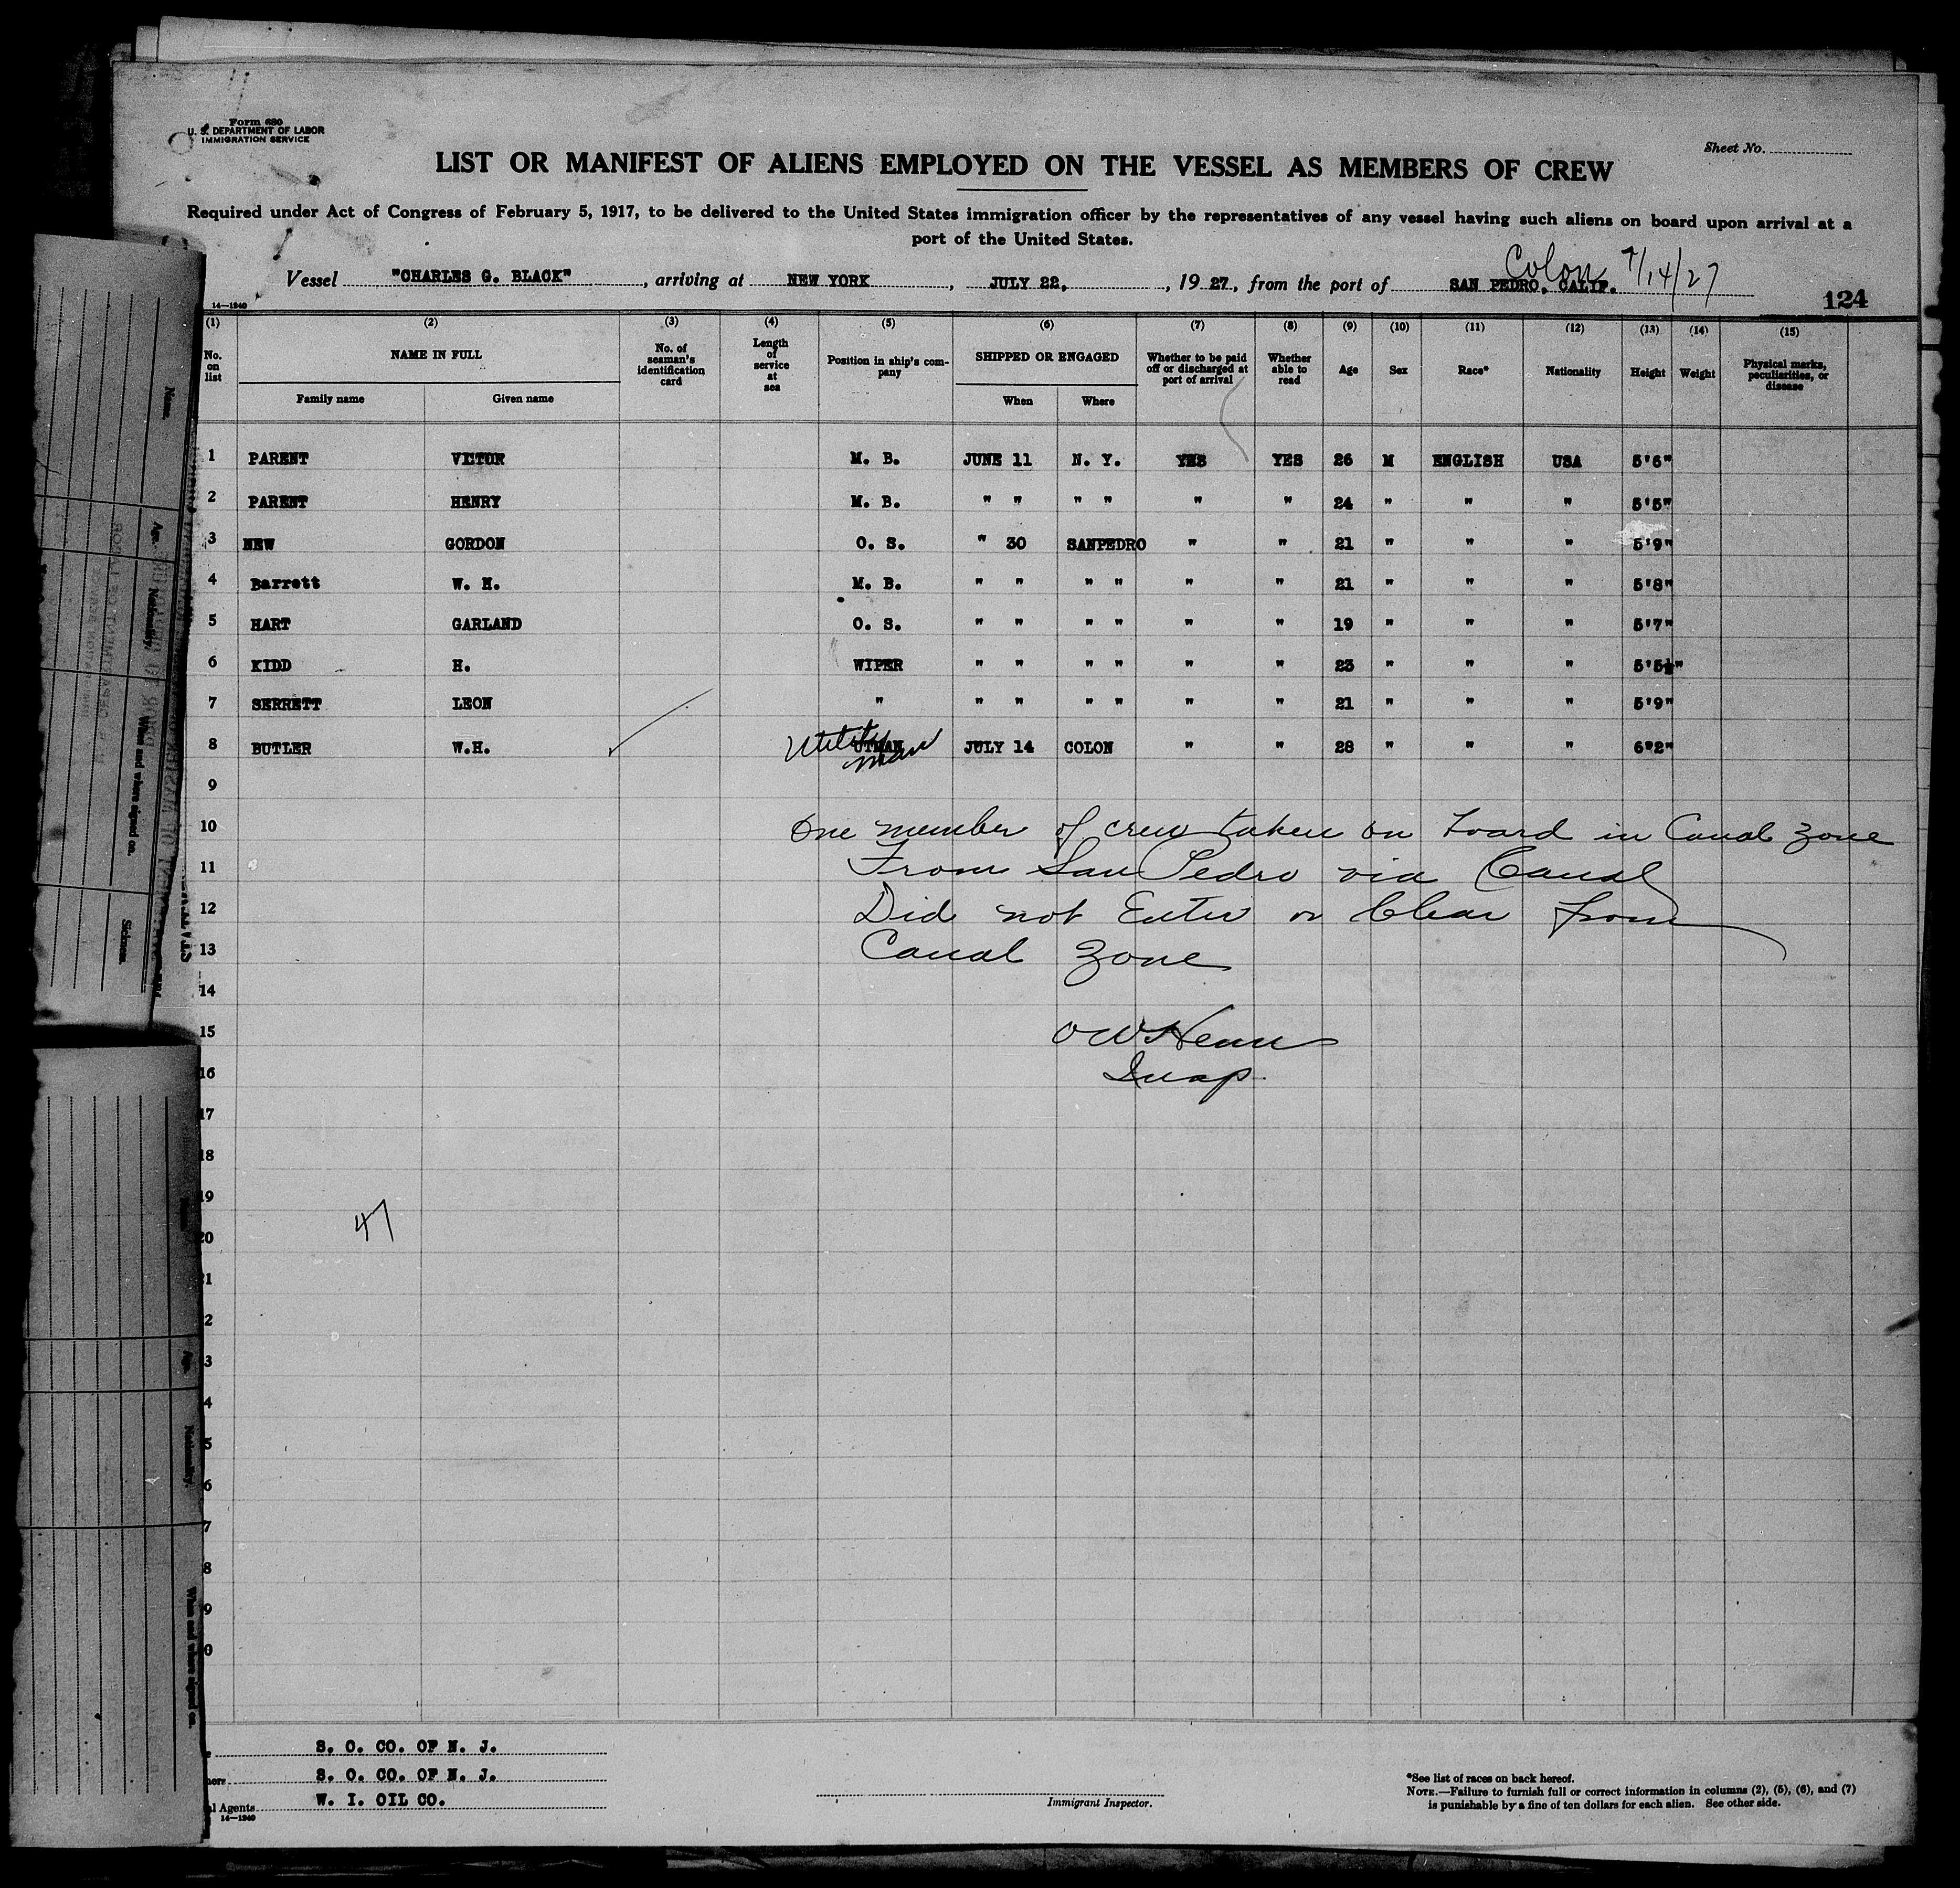 Form 680
U. S. DEPARTMENT OF LABOR
IMMIGRATION SERVICE
Sheet No.
LIST OR MANIFEST OF ALIENS EMPLOYED ON THE VESSEL AS MEMBERS OF CREW
Required under Act of Congress of February 5, 1917, to be delivered to the United States immigration officer by the representatives of any vessel having such aliens on board upon arrival at a
port of the United States.
Colon 7/14/27
Vessel "CHARLES G. BLACK", arriving at NEW YORK, JULY 22, , 1927, from the port of SAN PEDRO, CALIF.
14—1240
124
(1) (2) (3) (4) (5) (6) (7) (8) (9) (10) (11) (12) (13) (14) (15)
No. on list NAME IN FULL Family name Given name No. of seaman's identification card Length of service at sea Position in ship's company SHIPPED OR ENGAGED When Where Whether to be paid off or discharged at port of arrival Whether able to read Age Sex Race* Nationality Height Weight Physical marks, peculiarities, or disease
1 PARENT VICTOR M. B. JUNE 11 N. Y. YES YES 26 M ENGLISH USA 5'6"
2 PARENT HENRY M. B. " " " " " " 24 " " " 5'5"
3 NEW GORDON O. S. " 30 SANPEDRO " " 21 " " " 5'9"
4 Barrett W. H. M. B. " " " " " " 21 " " " 5'8"
5 HART GARLAND O. S. " " " " " " 19 " " " 5'7"
6 KIDD H. WIPER " " " " " " 23 " " " 5'5½"
7 SERRETT LEON " " " " " " " 21 " " " 5'9"
8 BUTLER W.H. UTMAN Utility man JULY 14 COLON " " 28 " " " 6'2"
9
10 One member of crew taken on board in Canal Zone
11 From San Pedro via Canal
12 Did not Enter or Clear from
13 Canal Zone
14
15 O W Henn
16 Insp
17
18
19
47
20
21
2
3
4
5
6
7
8
9
0
S. O. CO. OF N. J.
S. O. CO. OF N. J.
Agents W. I. OIL CO.
14—1240
Immigrant Inspector.
*See list of races on back hereof.
NOTE.—Failure to furnish full or correct information in columns (2), (5), (6), and (7)
is punishable by a fine of ten dollars for each alien. See other side.
Name.
Age.
Nationality.
When and where signed on.
Sickness.
Age.
Nationality.
When and where signed on.